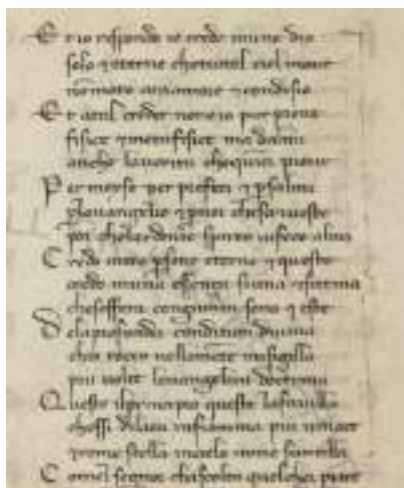 Et io respondo io credo in uno dio
solo ⁊ eterno che tutol ciel move
nō moto amore ⁊ condisio
Et atal creder non o io pur prove
fisice ⁊ metafisice ma dalmi
ancho laverita chequinci piove
Per moyse per profeti ⁊ p salmi
plo vangelio ⁊ p voi che scriveste
poi che lardēte spirto vi fece almi
Credo in tre psone eterne ⁊ queste
credo una essentia si una ⁊ si trina
che soffera congiunto sono ⁊ este
Dela profonda condition divina
chio tocco nellamēte mi sigilla
piu volte levangelica doctrina
Questo il principio queste lafavilla
chessi dilata in fiamma poi vivace
⁊ come stella in cielo in me scintilla
Comel segnor chascolta quel che piace